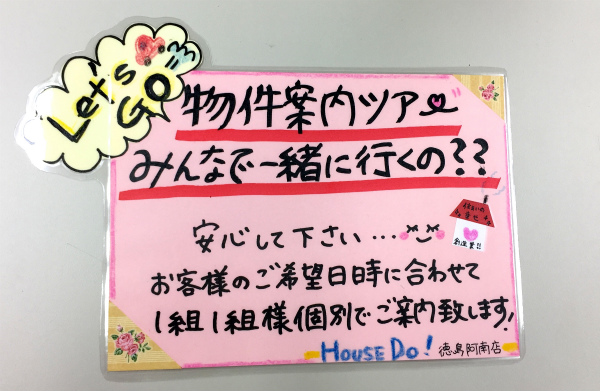 Let's
GO
物件案内ツアー
みんなで一緒に行くの??
住まいの
幸せ
創造業!!
安心して下さい...
お客様のご希望日時に合わせて
1組1組様個別でご案内致します!
HOUSE DO! 徳島阿南店